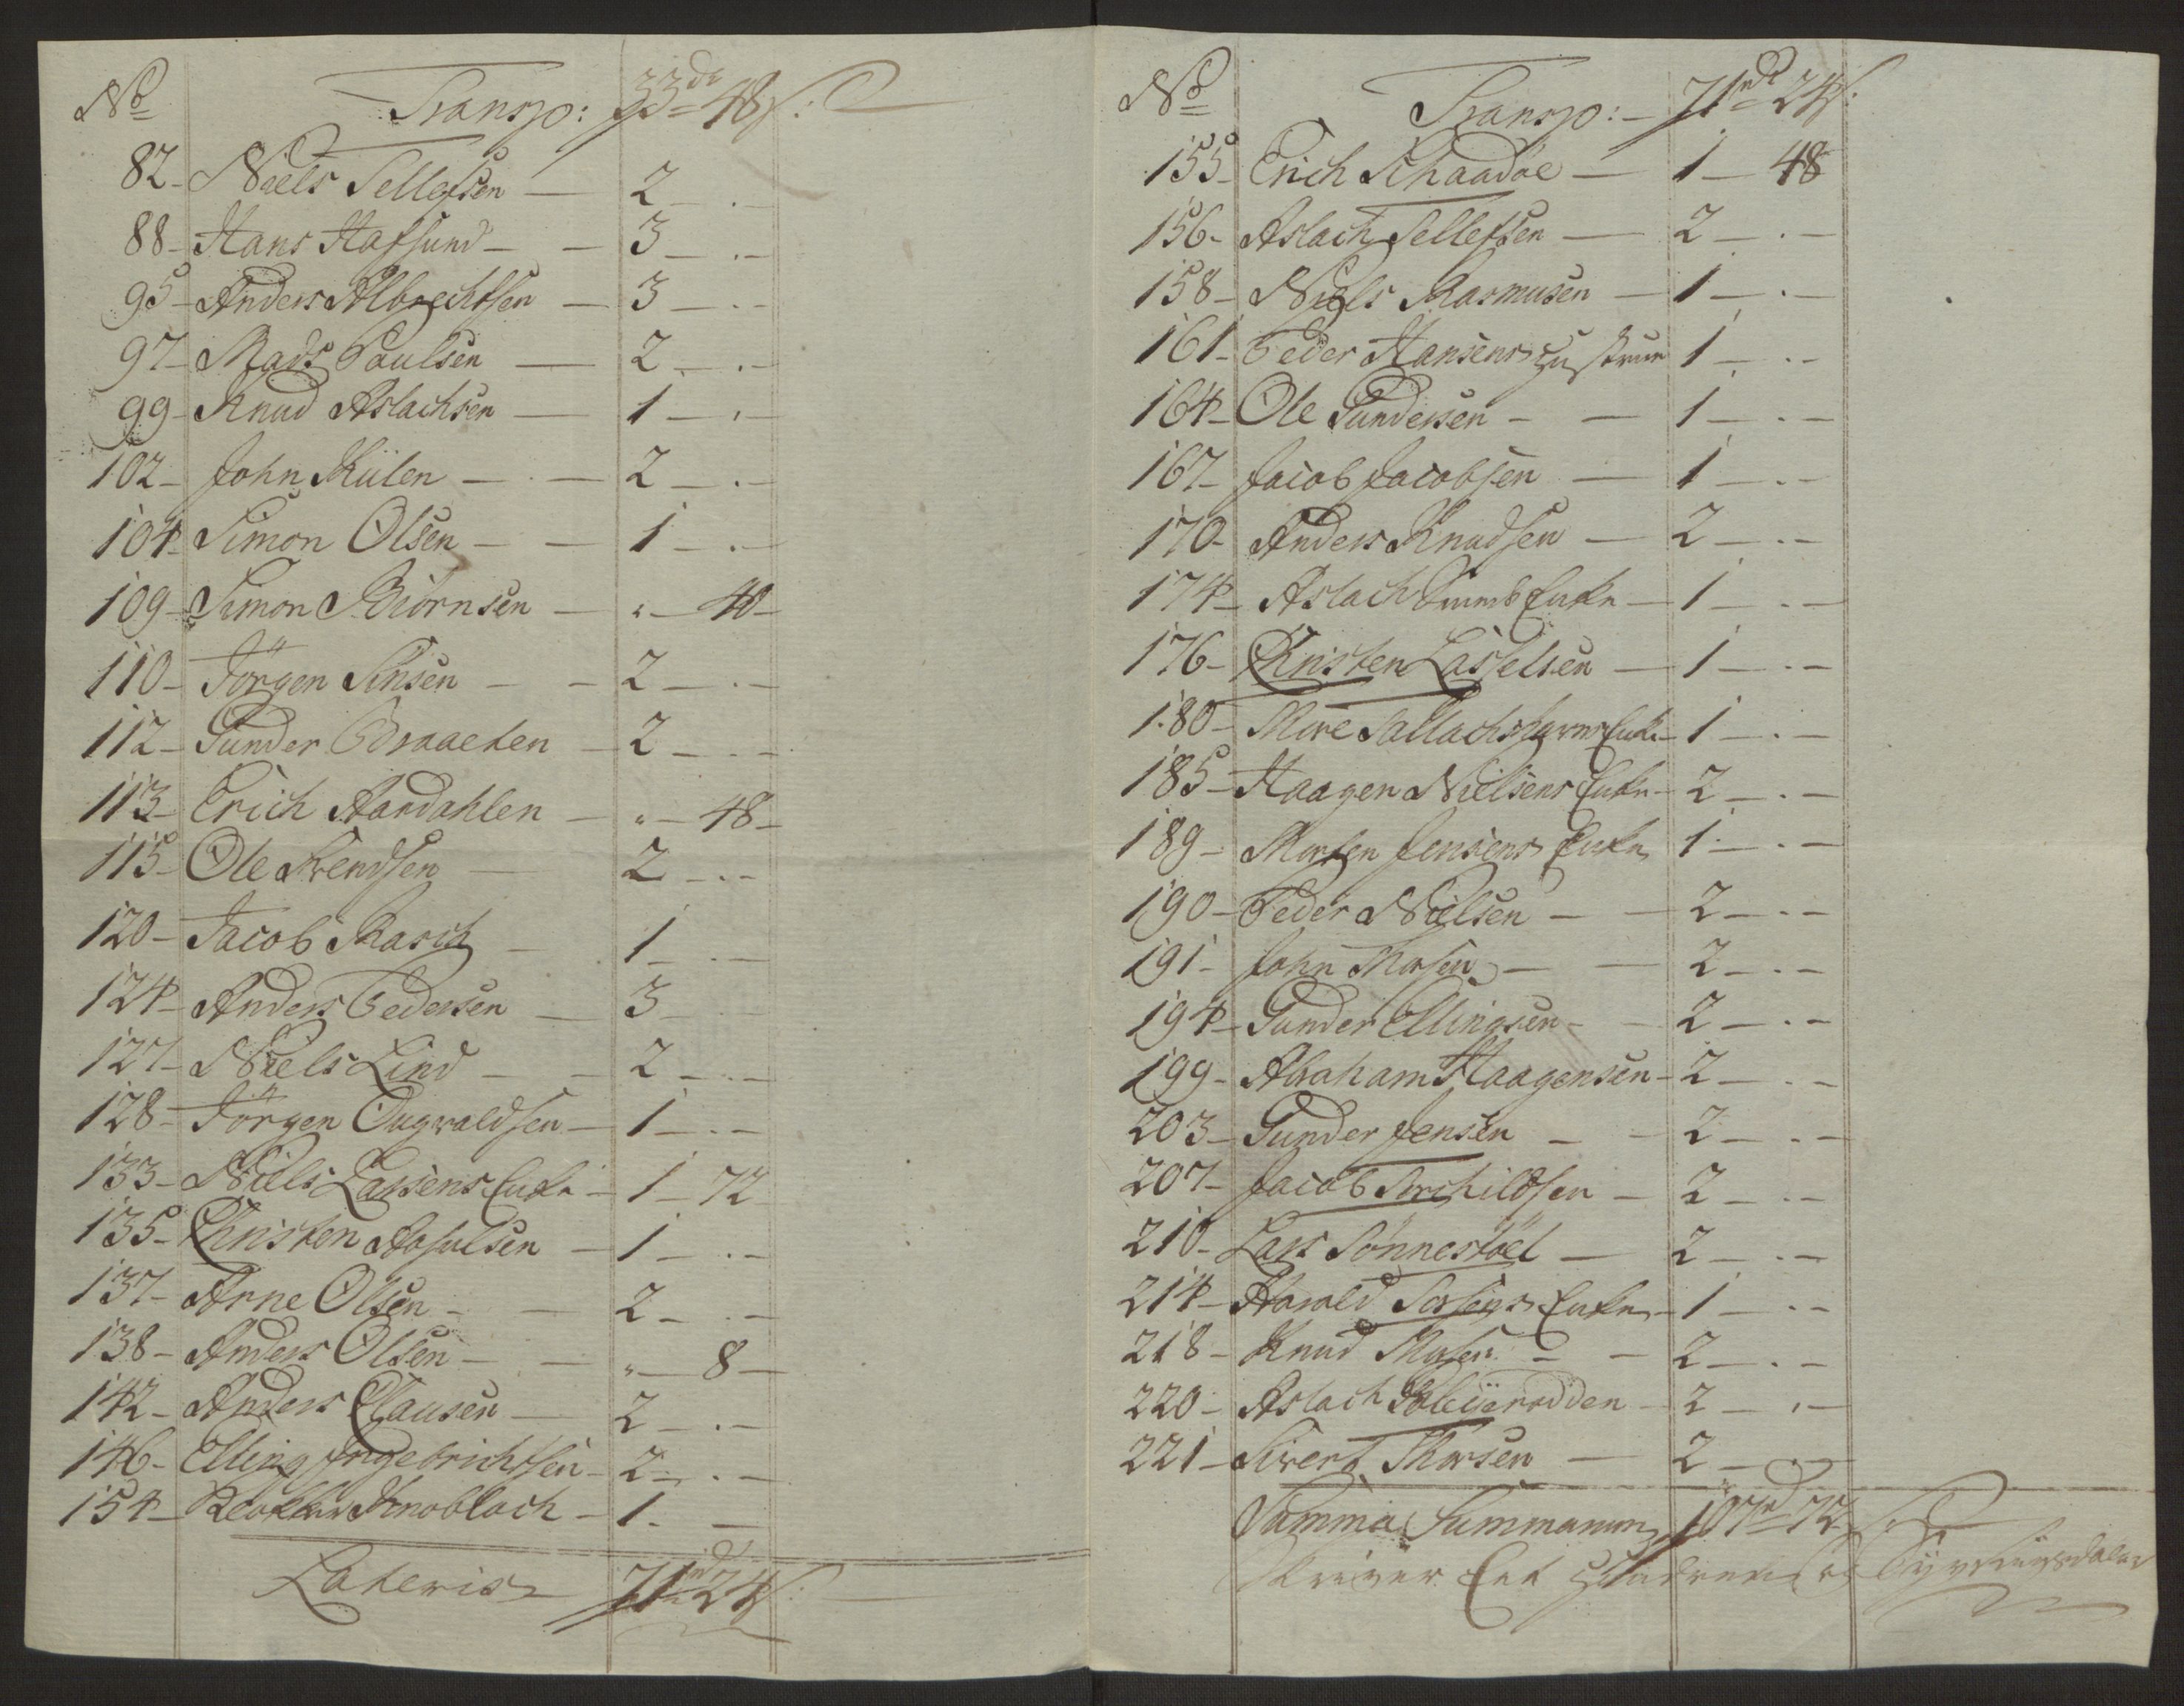 No Transp: 33 rd 48 s:
82 - Niels Tellefsen - 2 - . -
88 - Hans Hafsund - - 3 - . -
95 - Anders Albrechtsen - 3 - . -
97 - Mads Poulsen - 2 - . -
99 - Knud Aslachsen - 1 - . -
102 - John Külen - . - 2 - . -
104 - Simon Olsen - - 1 - . -
109 - Simon Biörnsen - " - 40 -
110 - Jörgen Jinsen - - 2 - . -
112 - Gunder Braaeten - 2 - . -
113 - Erich Aardahlen - " - 48 -
115 - Ole Svendsen - 2 - . -
120 - Jacob Rasch - 1 - . -
124 - Anders Pedersen - 3 -
127 - Niels Lind - - 2 - . -
128 - Jörgen Ougvaldsen - 1 - . -
133 - Niels Lassens Enke - 1 - 72
135 - Christen Aasulsen - 1 - . -
137 - Arne Olsen - - 2 - . -
138 - Anders Olsen - - " - 8 -
142 - Anders Clausen - 2 - . -
146 - Elling Ingebrichtsen - 2 - . -
154 - Knoblach - 1 . -
Lateris 71 rd 24 s:
No Transp: - 71 rd 24 s:
155 - Erich Schaadöe - 1 - 48
156 - Aslach Tellefsen - 2 - . -
158 - Niels Rasmusen - 1 - . -
161 - Peder Hansens Hustrue 1 - . -
164 - Ole Gundersen - - 1 - . -
167 - Jacob Jacobsen - 1 - . -
170 - Anders Knudsen - 2 - . -
174 - Aslach Enke - 1 - . -
176 - Christen Lasselsen - 1 - . -
180 - Enke - 1 - . -
185 - Haagen Nielsens Enke - 2 - . -
189 - Morten Jensens Enke 1 - . -
190 - Peder Nielsen - - 2 - . -
191 - John Thorsen - - 2 - . -
194 - Gunder Ellingsen - - 2 - . -
199 - Abraham Haagensen - 2 - . -
203 - Gunder Jensen - - 2 - . -
207 - Jacob Torchildsen - 2 - . -
210 - Lars Sönnestöel - 2 - . -
214 - Harald Enke - 1 - . -
218 - Knud Thorsen - - 2 - . -
220 - Aslach Bleijerodden - 2 - . -
221 - Sivert Thorsen - 2 - . -
Summa Summarum 107 rd 72 s:
Skriver Eet Hundrede og Syv Rigsdaler